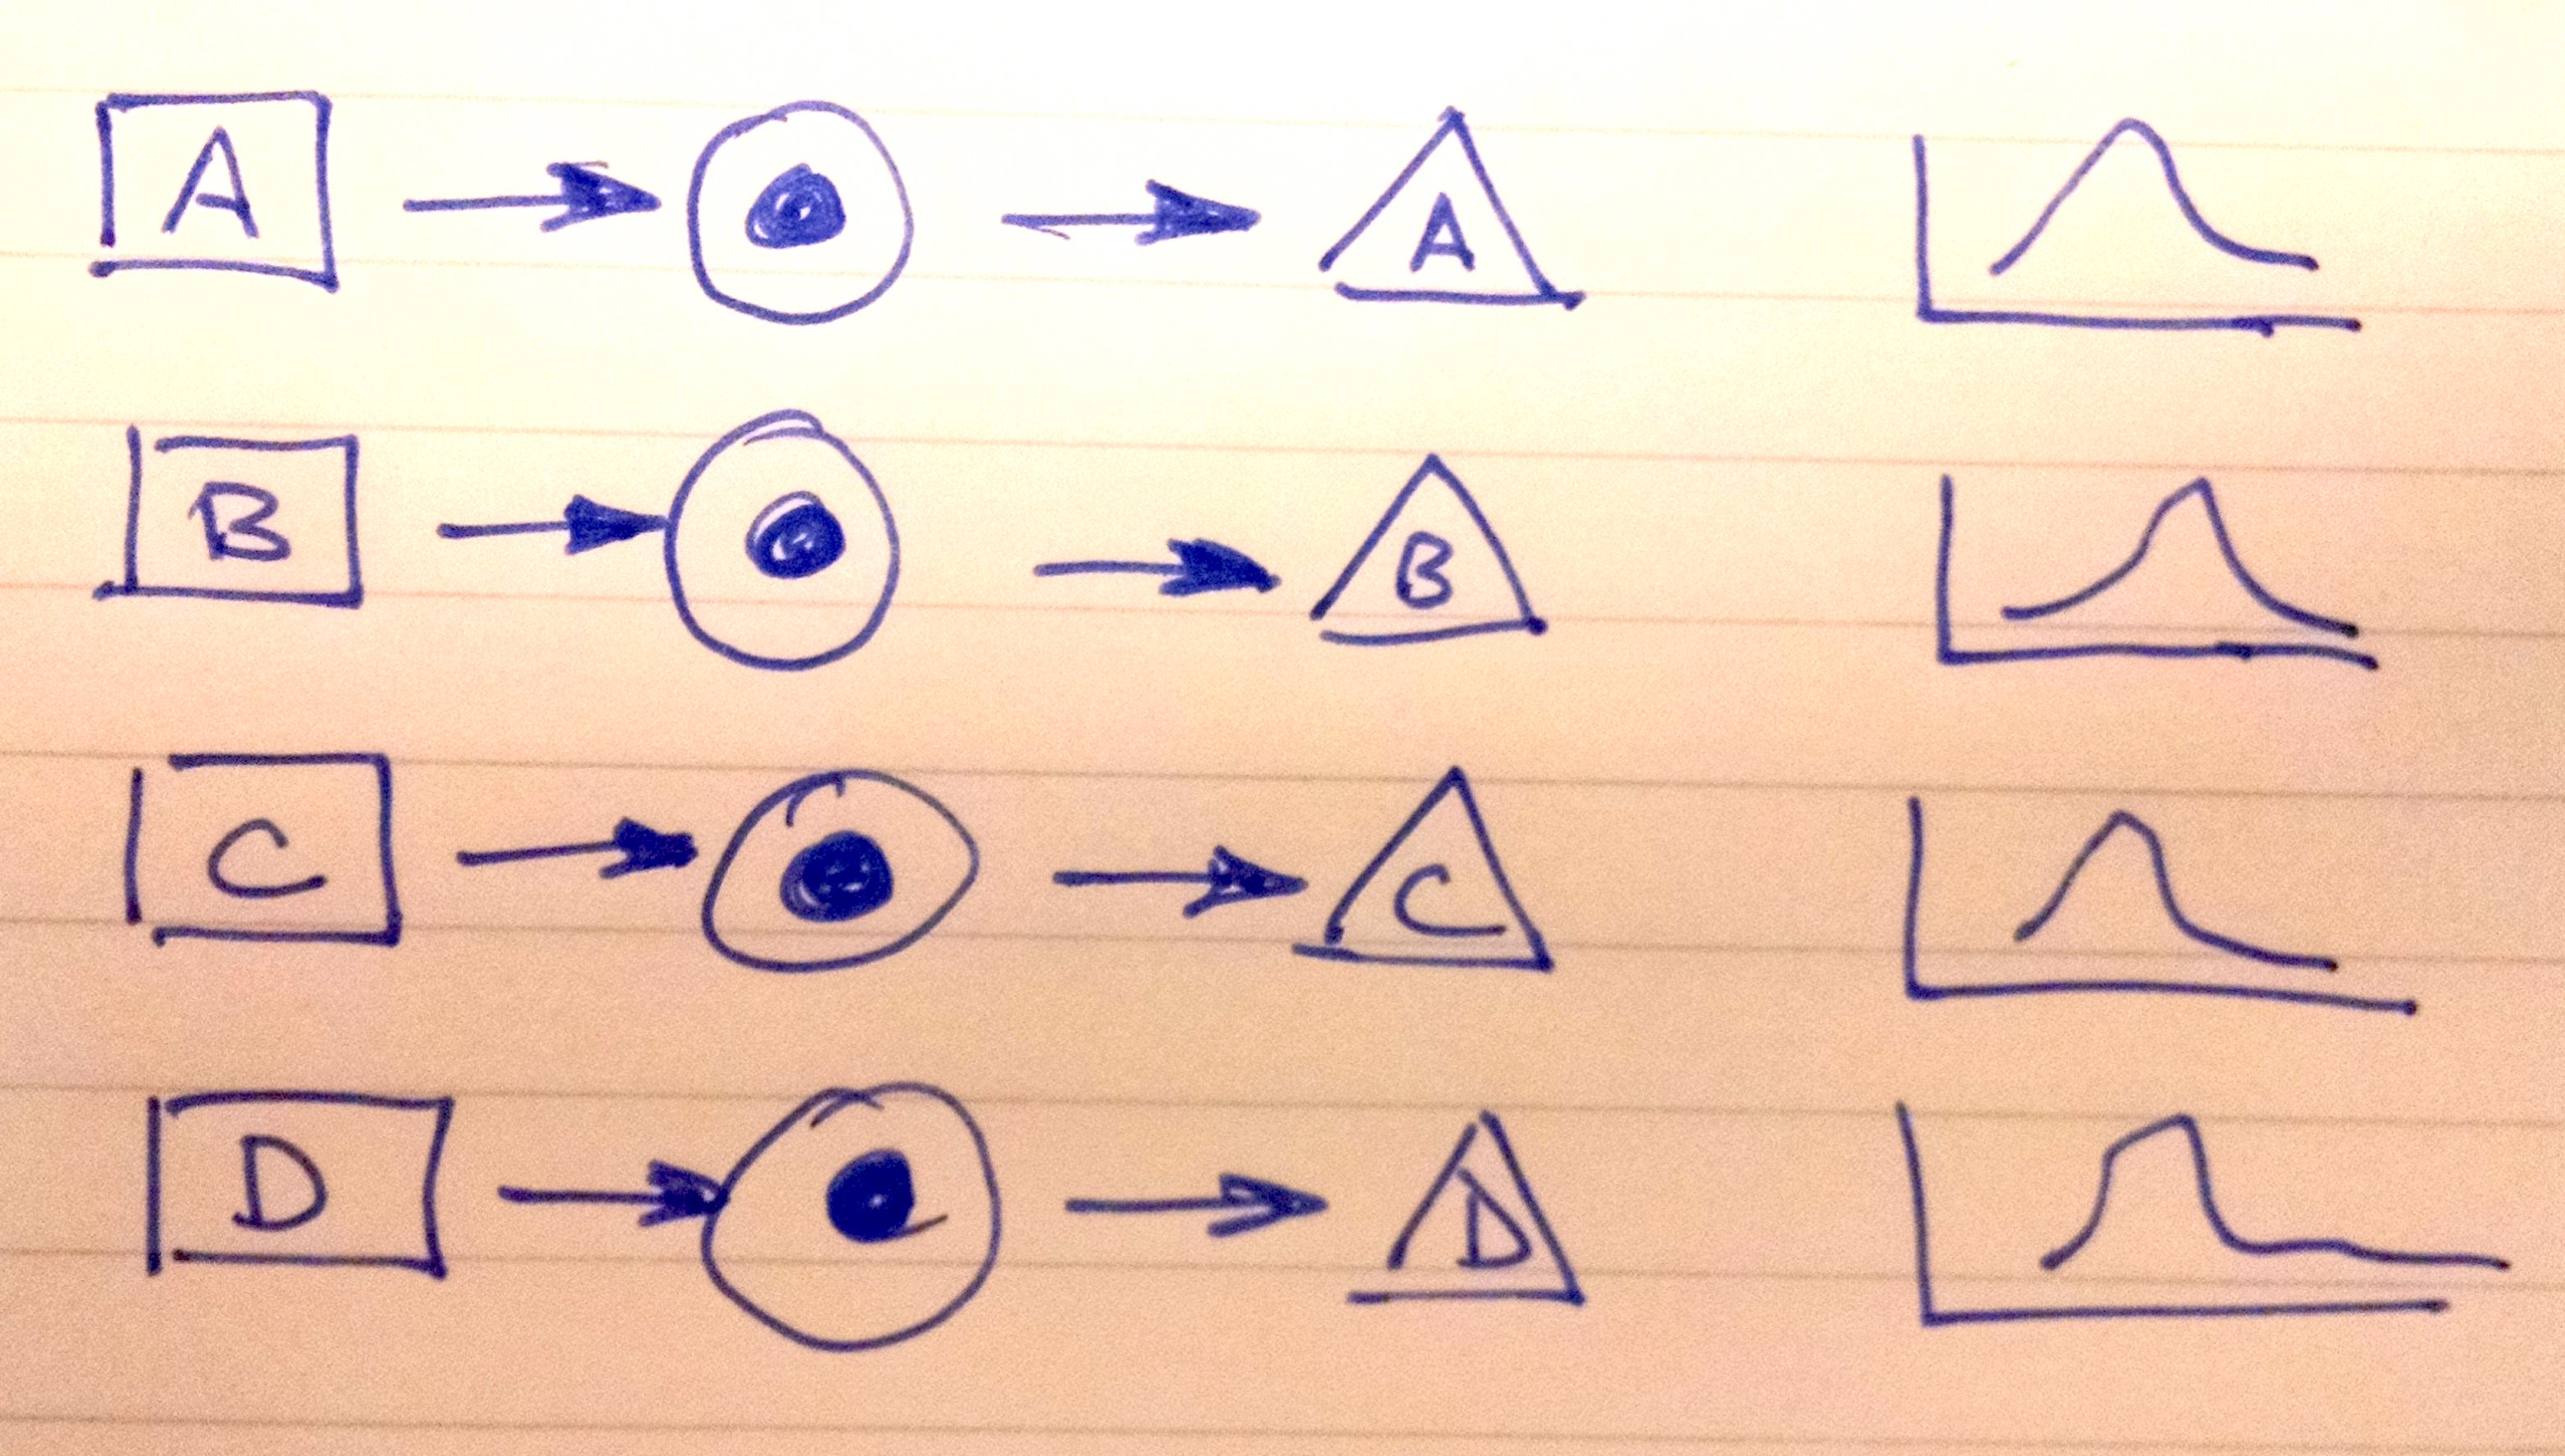 A A
B B
C C
D D